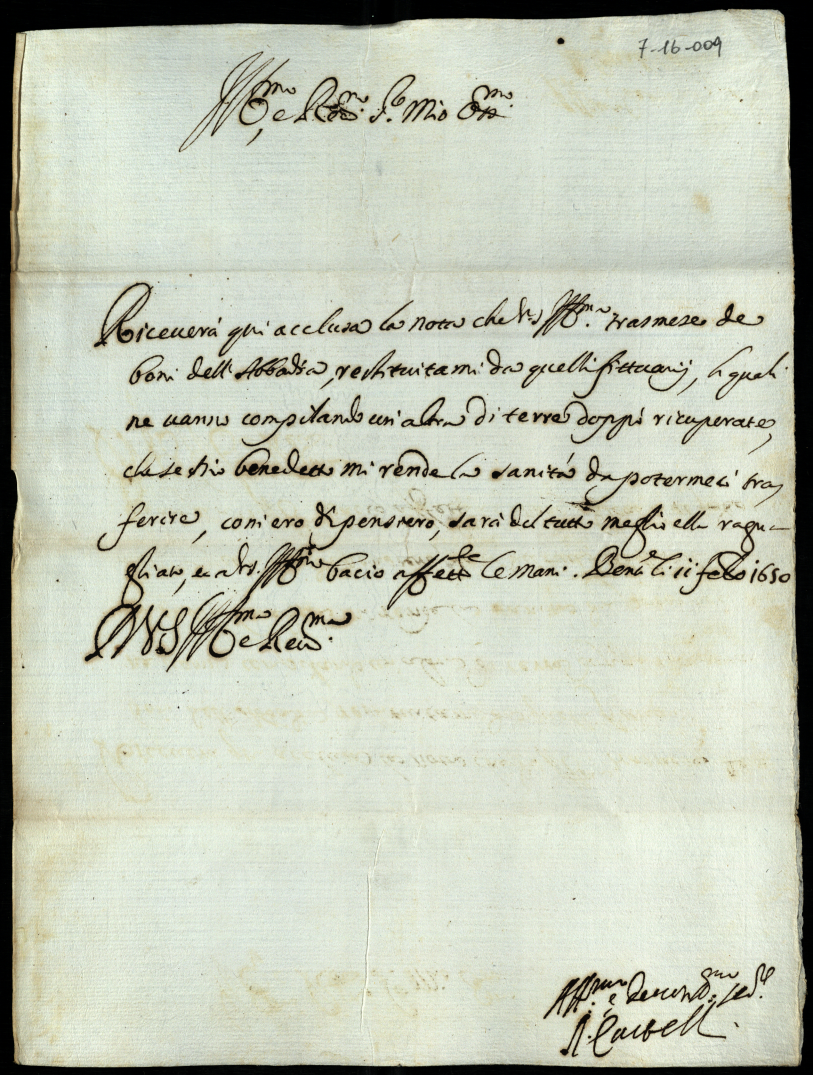 7-16-009
Ill.mo e Rev.mo S.r Mio Oss.mo
Riceverà qui acclusa la notta che VS Ill.ma trasmese de
boni dell'Abbadia, restituitami da quelli fittuarij, li quali
ne vanno compilando un'altra di terre doppò ricuperate,
che se Dio benedetto mi rende la sanità da potermeci tras
ferire, coni ero di pensiero, sarà del tutto meglio ella ragua-
gliata, e a VS. Ill.ma bacio affett.te le mani. li 11 febo 1650
D VS Ill.ma e Rev.ma
Aff.mo e ser.